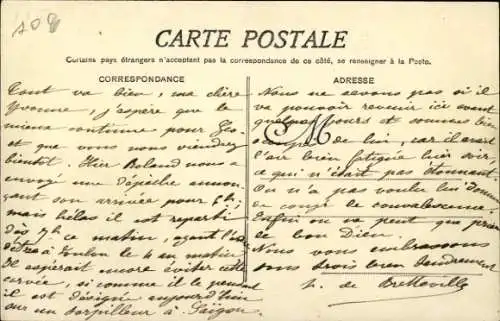 108
CARTE POSTALE
Certains pays étrangers n'acceptant pas la correspondance de ce côté, se renseigner à la Poste.
CORRESPONDANCE
Tout va bien, ma chère
Yvonne, j'espère que le
mieux continue pour
et que vous nous viendrez
bientôt. Hier Roland nous a
envoyé une dépêche annon-
çant son arrivée pour 6h
mais hélas il est reparti
dès 7h ce matin, ayant l'
à Toulon le 4 au matin
Il espérait encore éviter cette
corvée, si comme il le pensait
il est désigné aujourd'hui
sur un torpilleur à Saïgon.
ADRESSE
Nous ne savons pas si il
va pouvoir revenir ici avant
quelques jours et sommes bien
de lui, car il avait
l'air bien fatigué hier soir
ce qui n'était pas étonnant.
On n'a pas voulu lui donner
de congé de convalescence.
Enfin on ne peut que prier
le bon Dieu.
Nous vous embrassons
tous trois bien tendrement
de Bretteville
CM